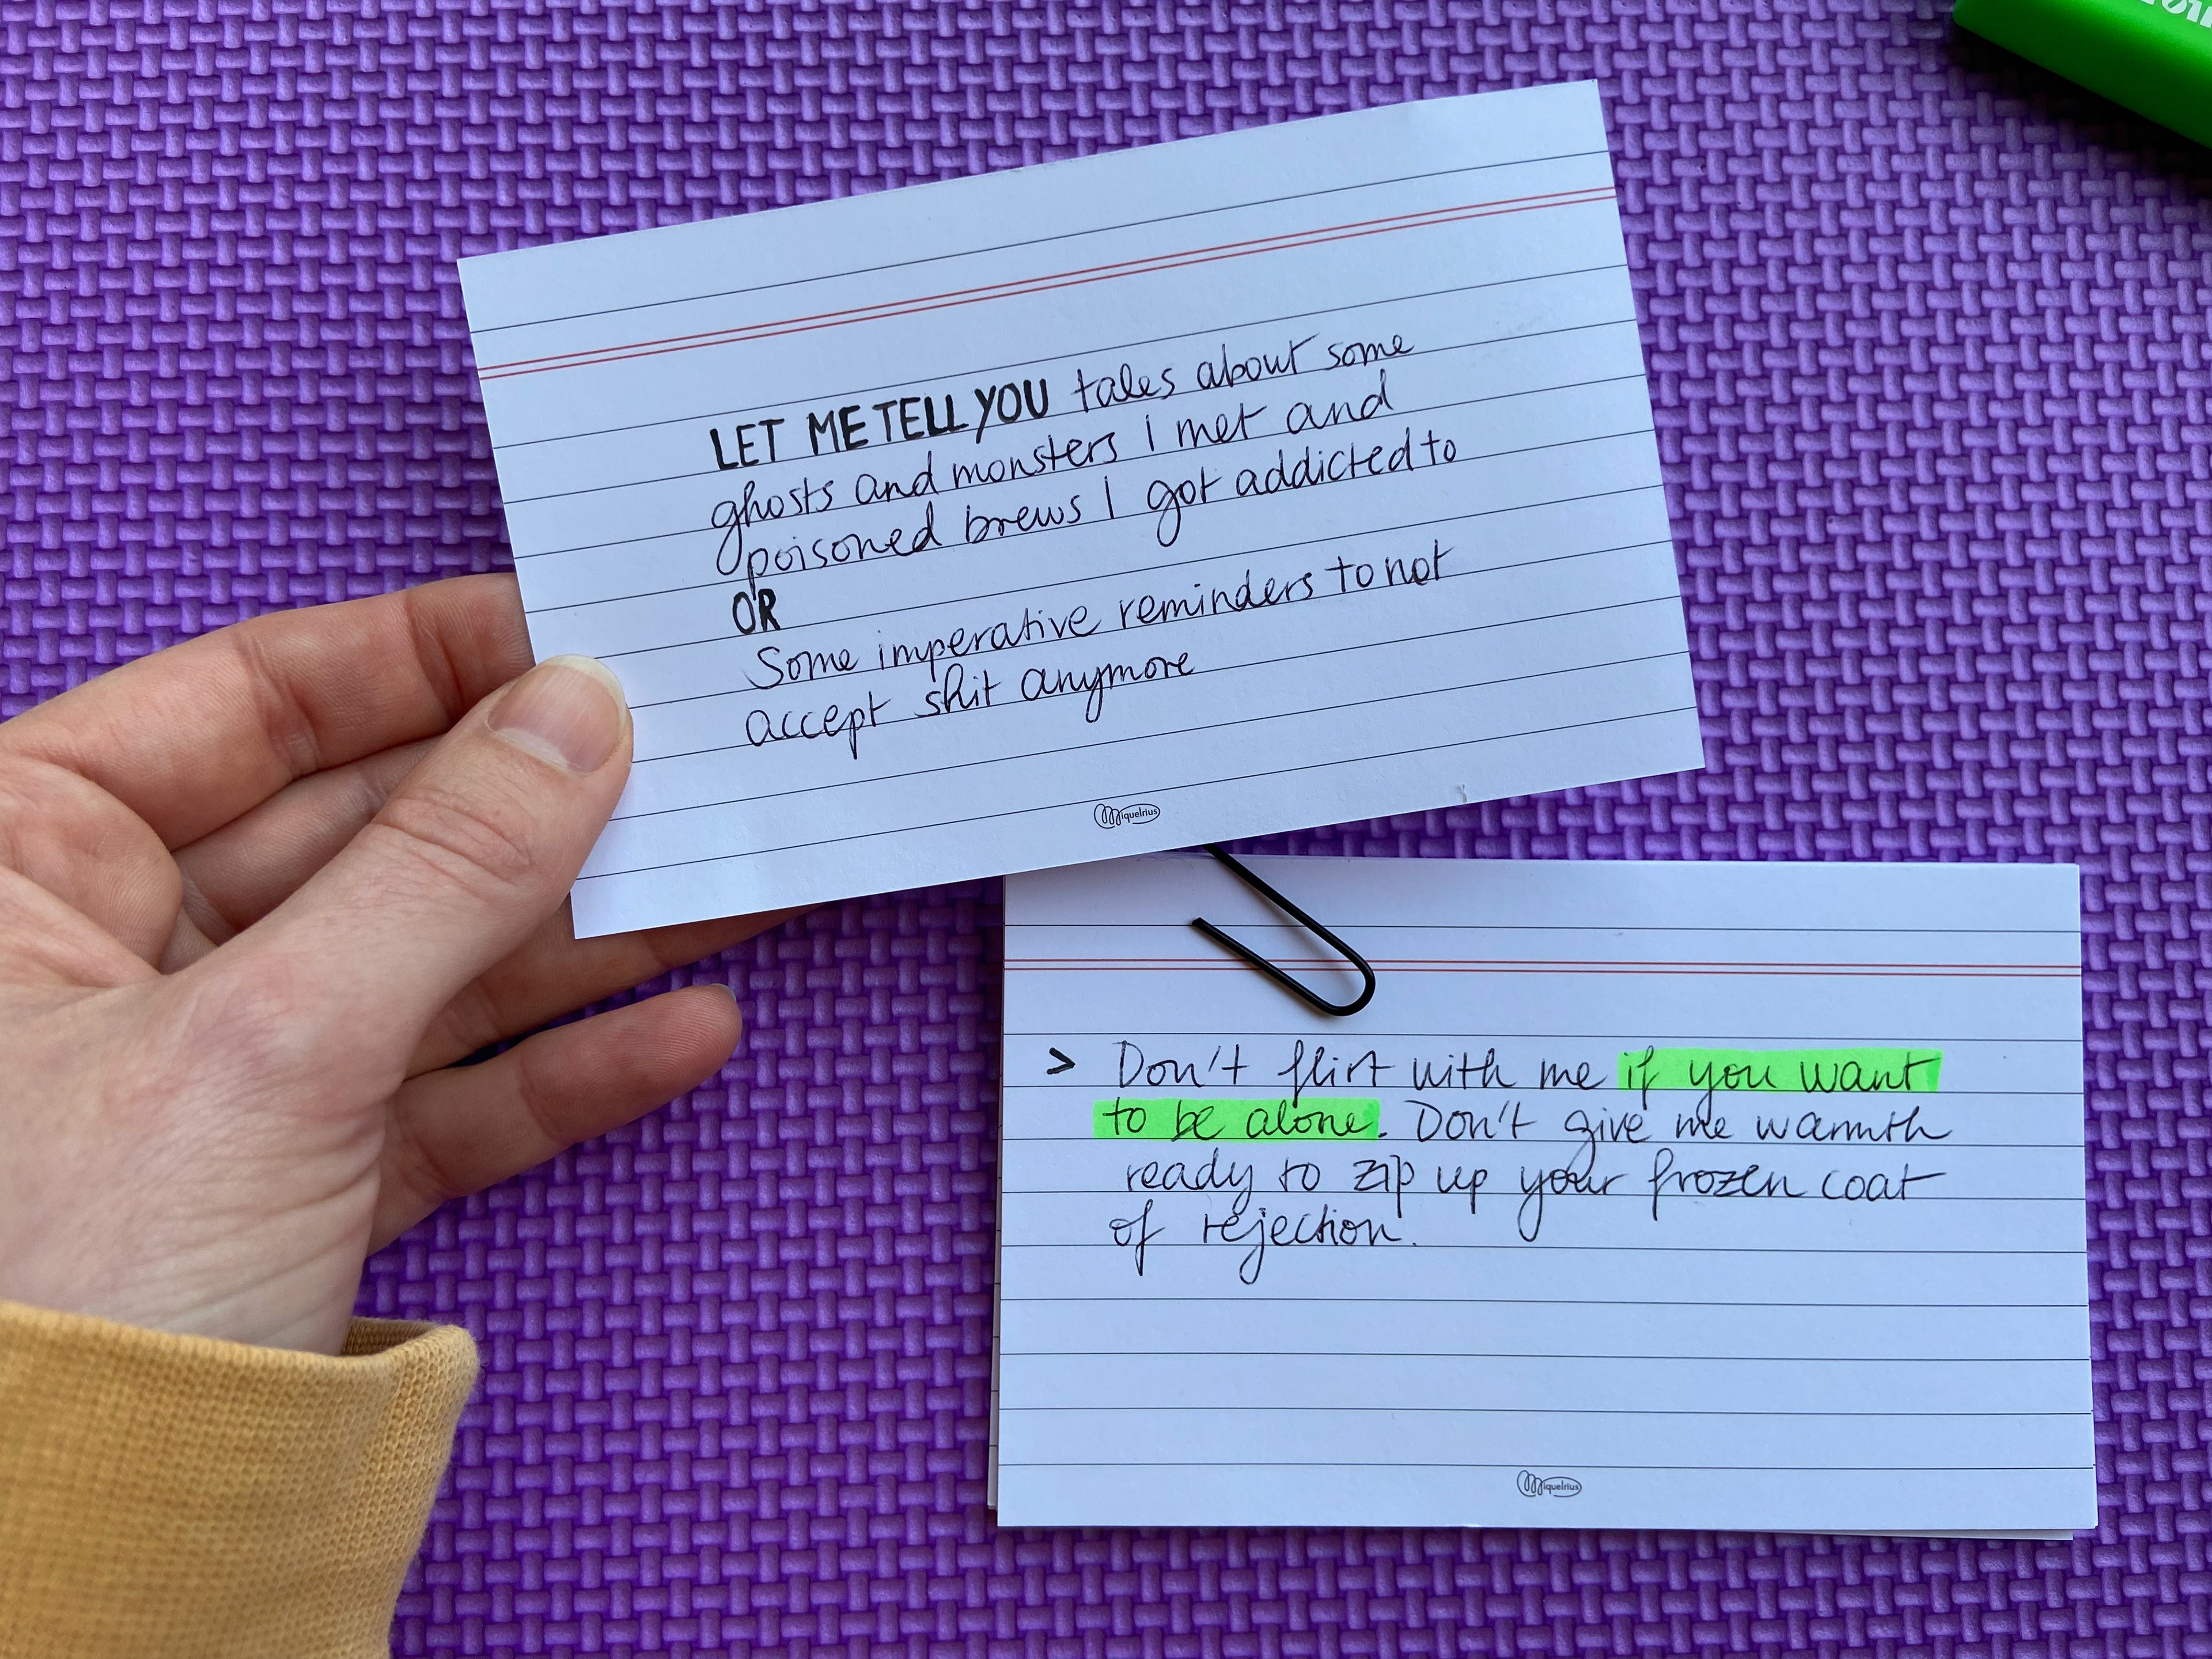 LET ME TELL YOU tales about some
ghosts and monsters I met and
poisoned brews I got addicted to
OR
Some imperative reminders to not
accept shit anymore
Miquelrius
> Don't flirt with me if you want
to be alone. Don't give me warmth
ready to zip up your frozen coat
of rejection.
Miquelrius